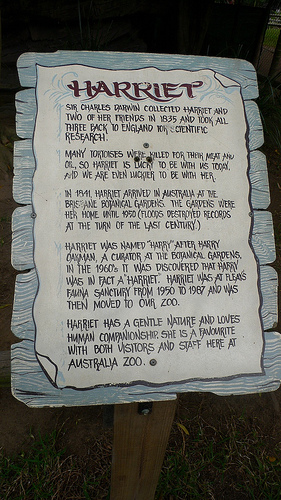 HARRIET
SIR CHARLES DARWIN COLLECTED HARRIET AND
TWO OF HER FRIENDS IN 1835 AND TOOK ALL
THREE BACK TO ENGLAND FOR SCIENTIFIC
RESEARCH.
MANY TORTOISES WERE KILLED FOR THEIR MEAT AND
OIL, SO HARRIET IS LUCKY TO BE WITH US TODAY,
AND WE ARE EVEN LUCKIER TO BE WITH HER.
IN 1841, HARRIET ARRIVED IN AUSTRALIA AT THE
BRISBANE BOTANICAL GARDENS. THE GARDENS WERE
HER HOME UNTIL 1950 (FLOODS DESTROYED RECORDS
AT THE TURN OF THE LAST CENTURY.)
HARRIET WAS NAMED "HARRY" AFTER HARRY
OAKMAN, A CURATOR AT THE BOTANICAL GARDENS.
IN THE 1960'S IT WAS DISCOVERED THAT HARRY
WAS IN FACT A HARRIET. HARRIET WAS AT FLEAY'S
FAUNA SANCTURY FROM 1950 TO 1987 AND WAS
THEN MOVED TO OUR ZOO.
HARRIET HAS A GENTLE NATURE AND LOVES
HUMAN COMPANIONSHIP. SHE IS A FAVOURITE
WITH BOTH VISITORS AND STAFF HERE AT
AUSTRALIA ZOO.